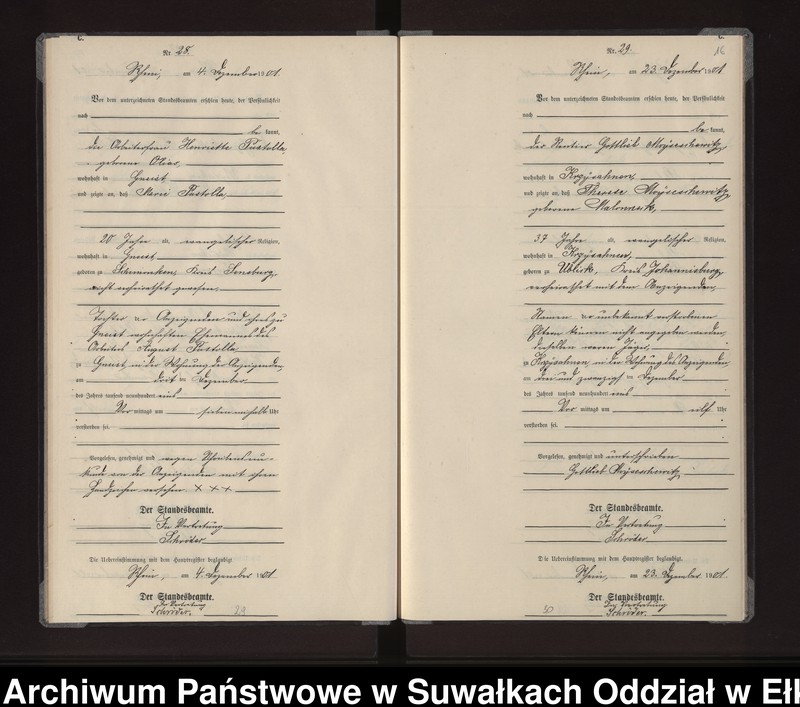 C.
Nr. 28.
Rhein, am 4. Dezember 1901.
Vor dem unterzeichneten Standesbeamten erschien heute, der Persönlichkeit
nach
be kannt,
die Arbeiterfrau Henriette Pustolla,
geborene
wohnhaft in
und zeigte an, daß Marie Pustolla,
20 Jahre alt, evangelischer Religion,
wohnhaft in
geboren zu Kreis Sensburg,
nicht verheirathet gewesen,
Tochter der Anzeigenden und ihres zu
wohnhaften Ehemannes des
Arbeiters August Pustolla,
zu in der Wohnung der Anzeigenden
am dritten Dezember
des Jahres tausend neunhundert eins
Vor mittags um sieben einhalb Uhr
verstorben sei.
Vorgelesen, genehmigt und wegen Schreibensun-
kunde von der Anzeigenden mit ihren
Handzeichen versehen. + + +
Der Standesbeamte.
In Vertretung
Schröder
Die Uebereinstimmung mit dem Hauptregister beglaubigt.
Rhein, am 4. Dezember 1901.
Der Standesbeamte.
In Vertretung
Schröder.
29
C.
16
Nr. 29.
Rhein, am 23. Dezember 1901
Vor dem unterzeichneten Standesbeamten erschien heute, der Persönlichkeit
nach
be kannt,
der Rentier Gottlieb
wohnhaft in
und zeigte an, daß Therese
geborene
37 Jahre alt, evangelischer Religion,
wohnhaft in
geboren zu Ublick, Kreis Johannisburg,
verheirathet mit dem Anzeigenden,
Namen der unbekannt verstorbenen
Eltern können nicht angegeben werden
dieselben waren
zu in der Wohnung des Anzeigenden
am drei und zwanzigsten Dezember
des Jahres tausend neunhundert eins
Vor mittags um elf Uhr
verstorben sei.
Vorgelesen, genehmigt und unterschrieben
Gottlieb
Der Standesbeamte.
In Vertretung
Schröder
Die Uebereinstimmung mit dem Hauptregister beglaubigt.
Rhein, am 23. Dezember 1901.
Der Standesbeamte.
In Vertretung
Schröder.
30
Archiwum Państwowe w Suwałkach Oddział w Ełk